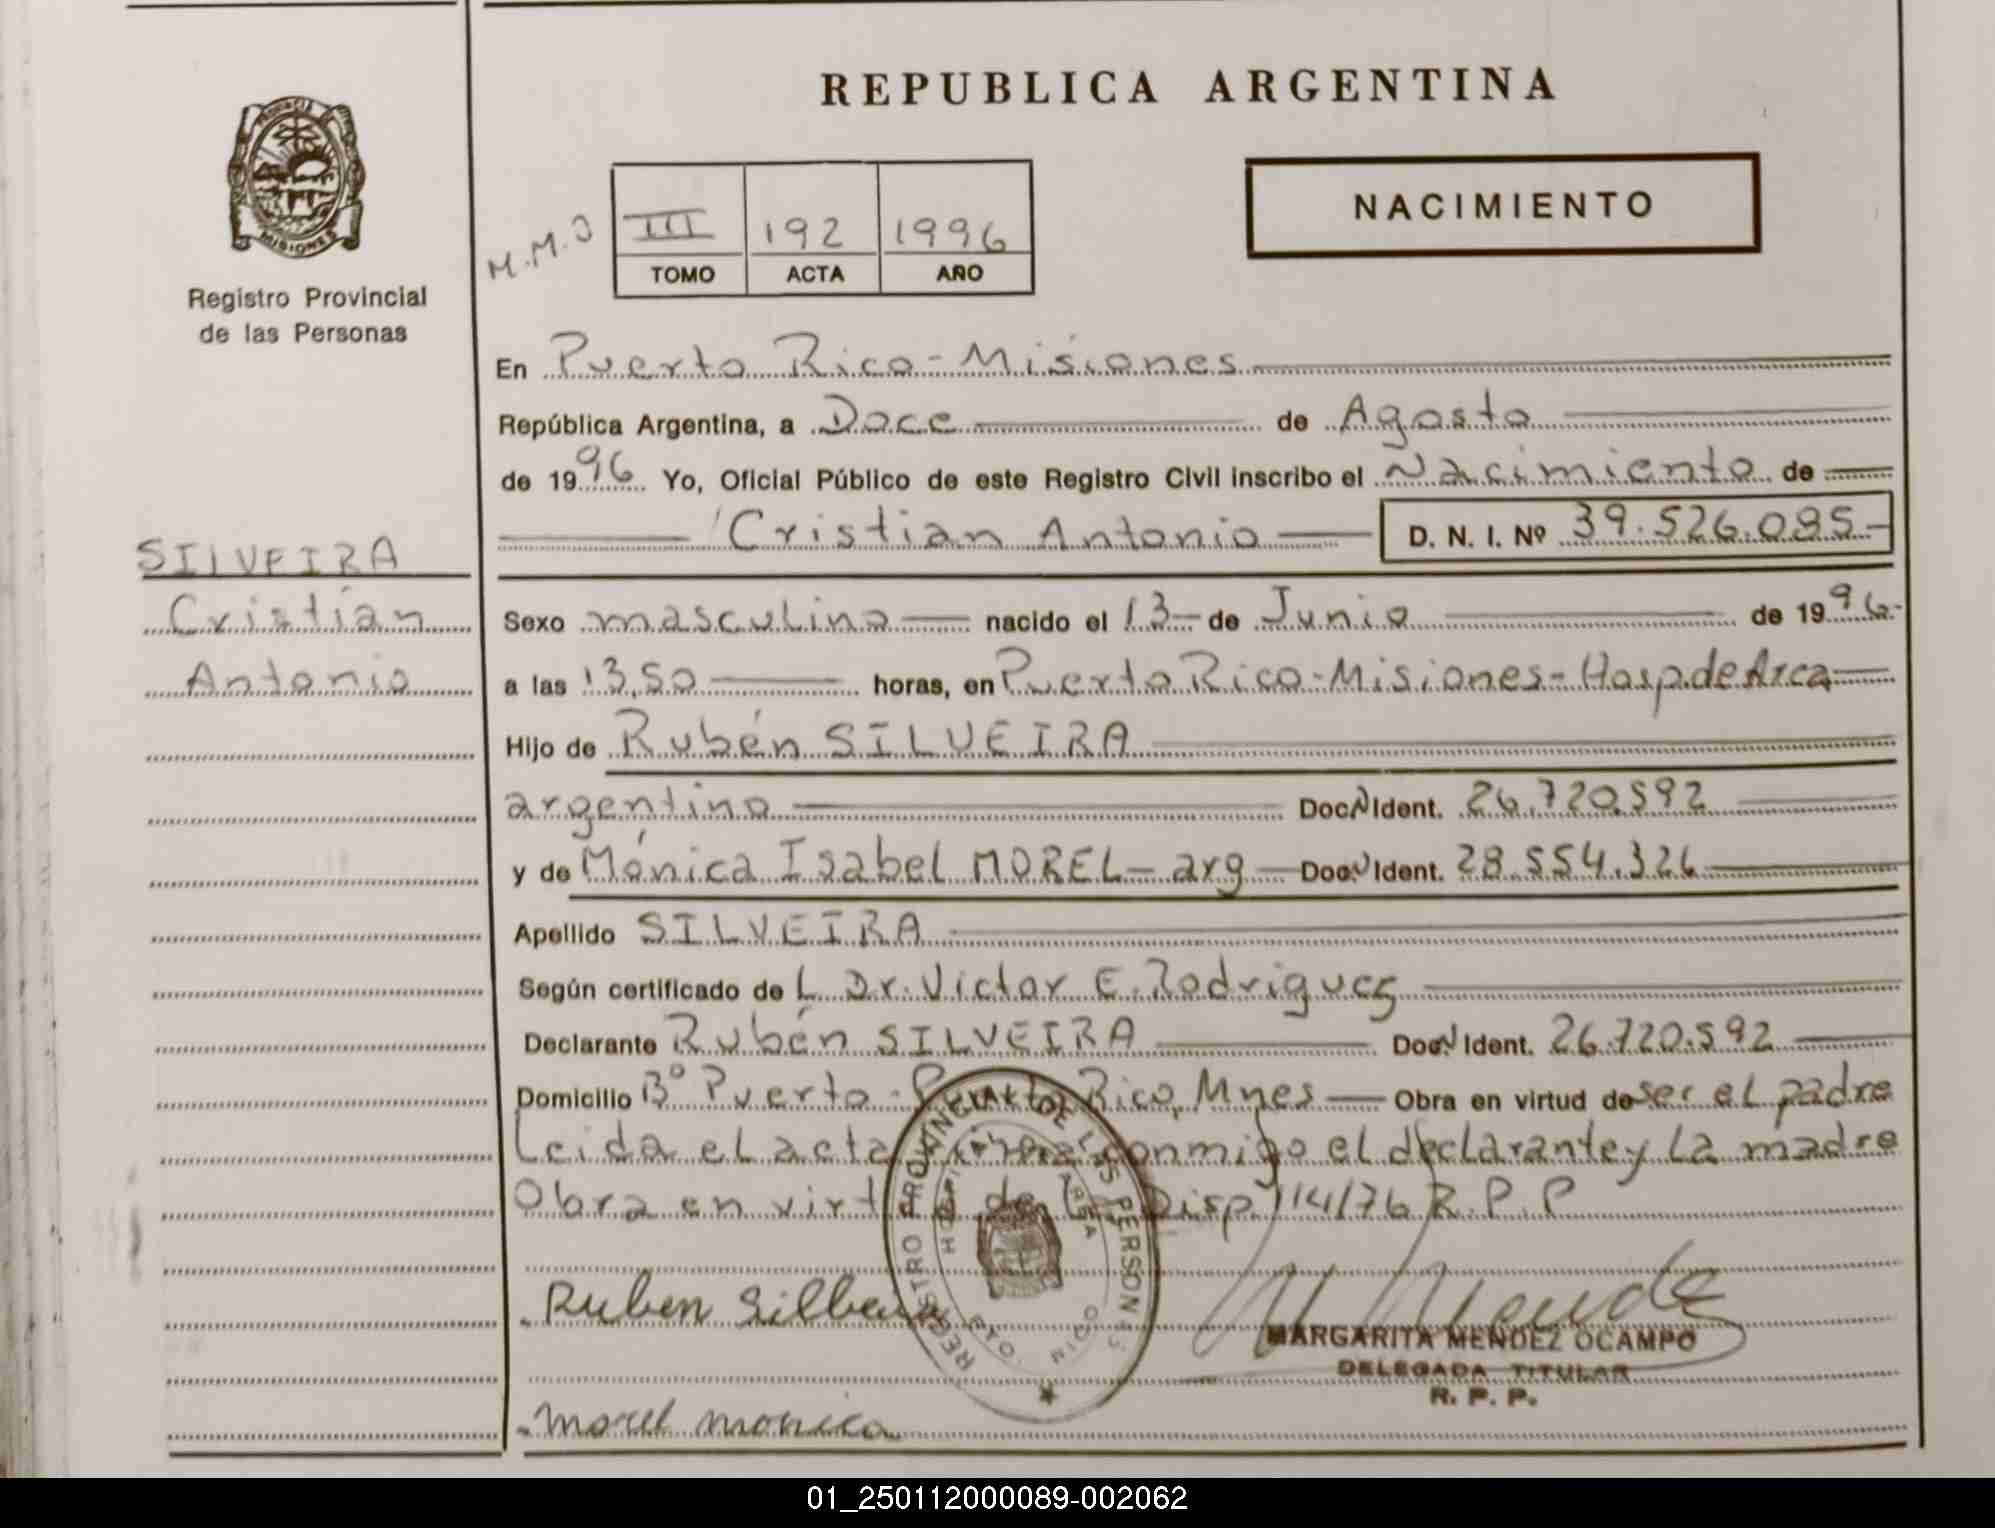 REPUBLICA ARGENTINA
PROVINCIA
MISIONES
Registro Provincial
de las Personas
M.M.O
III 192 1996
TOMO ACTA AÑO
NACIMIENTO
SILVEIRA
Cristian
Antonio
En Puerto Rico - Misiones
República Argentina, a Doce de Agosto
de 1996 Yo, Oficial Público de este Registro Civil inscribo el Nacimiento de
Cristian Antonio D. N. I. Nº 39.526.085-
Sexo masculino nacido el 13 de Junio de 1996-
a las 13,50 horas, en Puerto Rico - Misiones - Hosp. de Area
Hijo de Rubén SILVEIRA
argentino Doc. N Ident. 26.720.592
y de Mónica Isabel MOREL - arg Doc. N Ident. 28.554.326
Apellido SILVEIRA
Según certificado de L Dr. Victor E. Rodriguez
Declarante Rubén SILVEIRA Doc. N Ident. 26.720.592
Domicilio Bº Puerto - Puerto Rico, Mnes Obra en virtud de ser el padre
Leida el acta firma conmigo el declarante y la madre
Obra en virtud de la Disp 114/76 R.P.P
Ruben Silbeira
REGISTRO PROVINCIAL DE LAS PERSONAS
HOSPITAL AREA
MARGARITA MENDEZ OCAMPO
DELEGADA TITULAR
R. P. P.
Morel monica
01_250112000089-002062